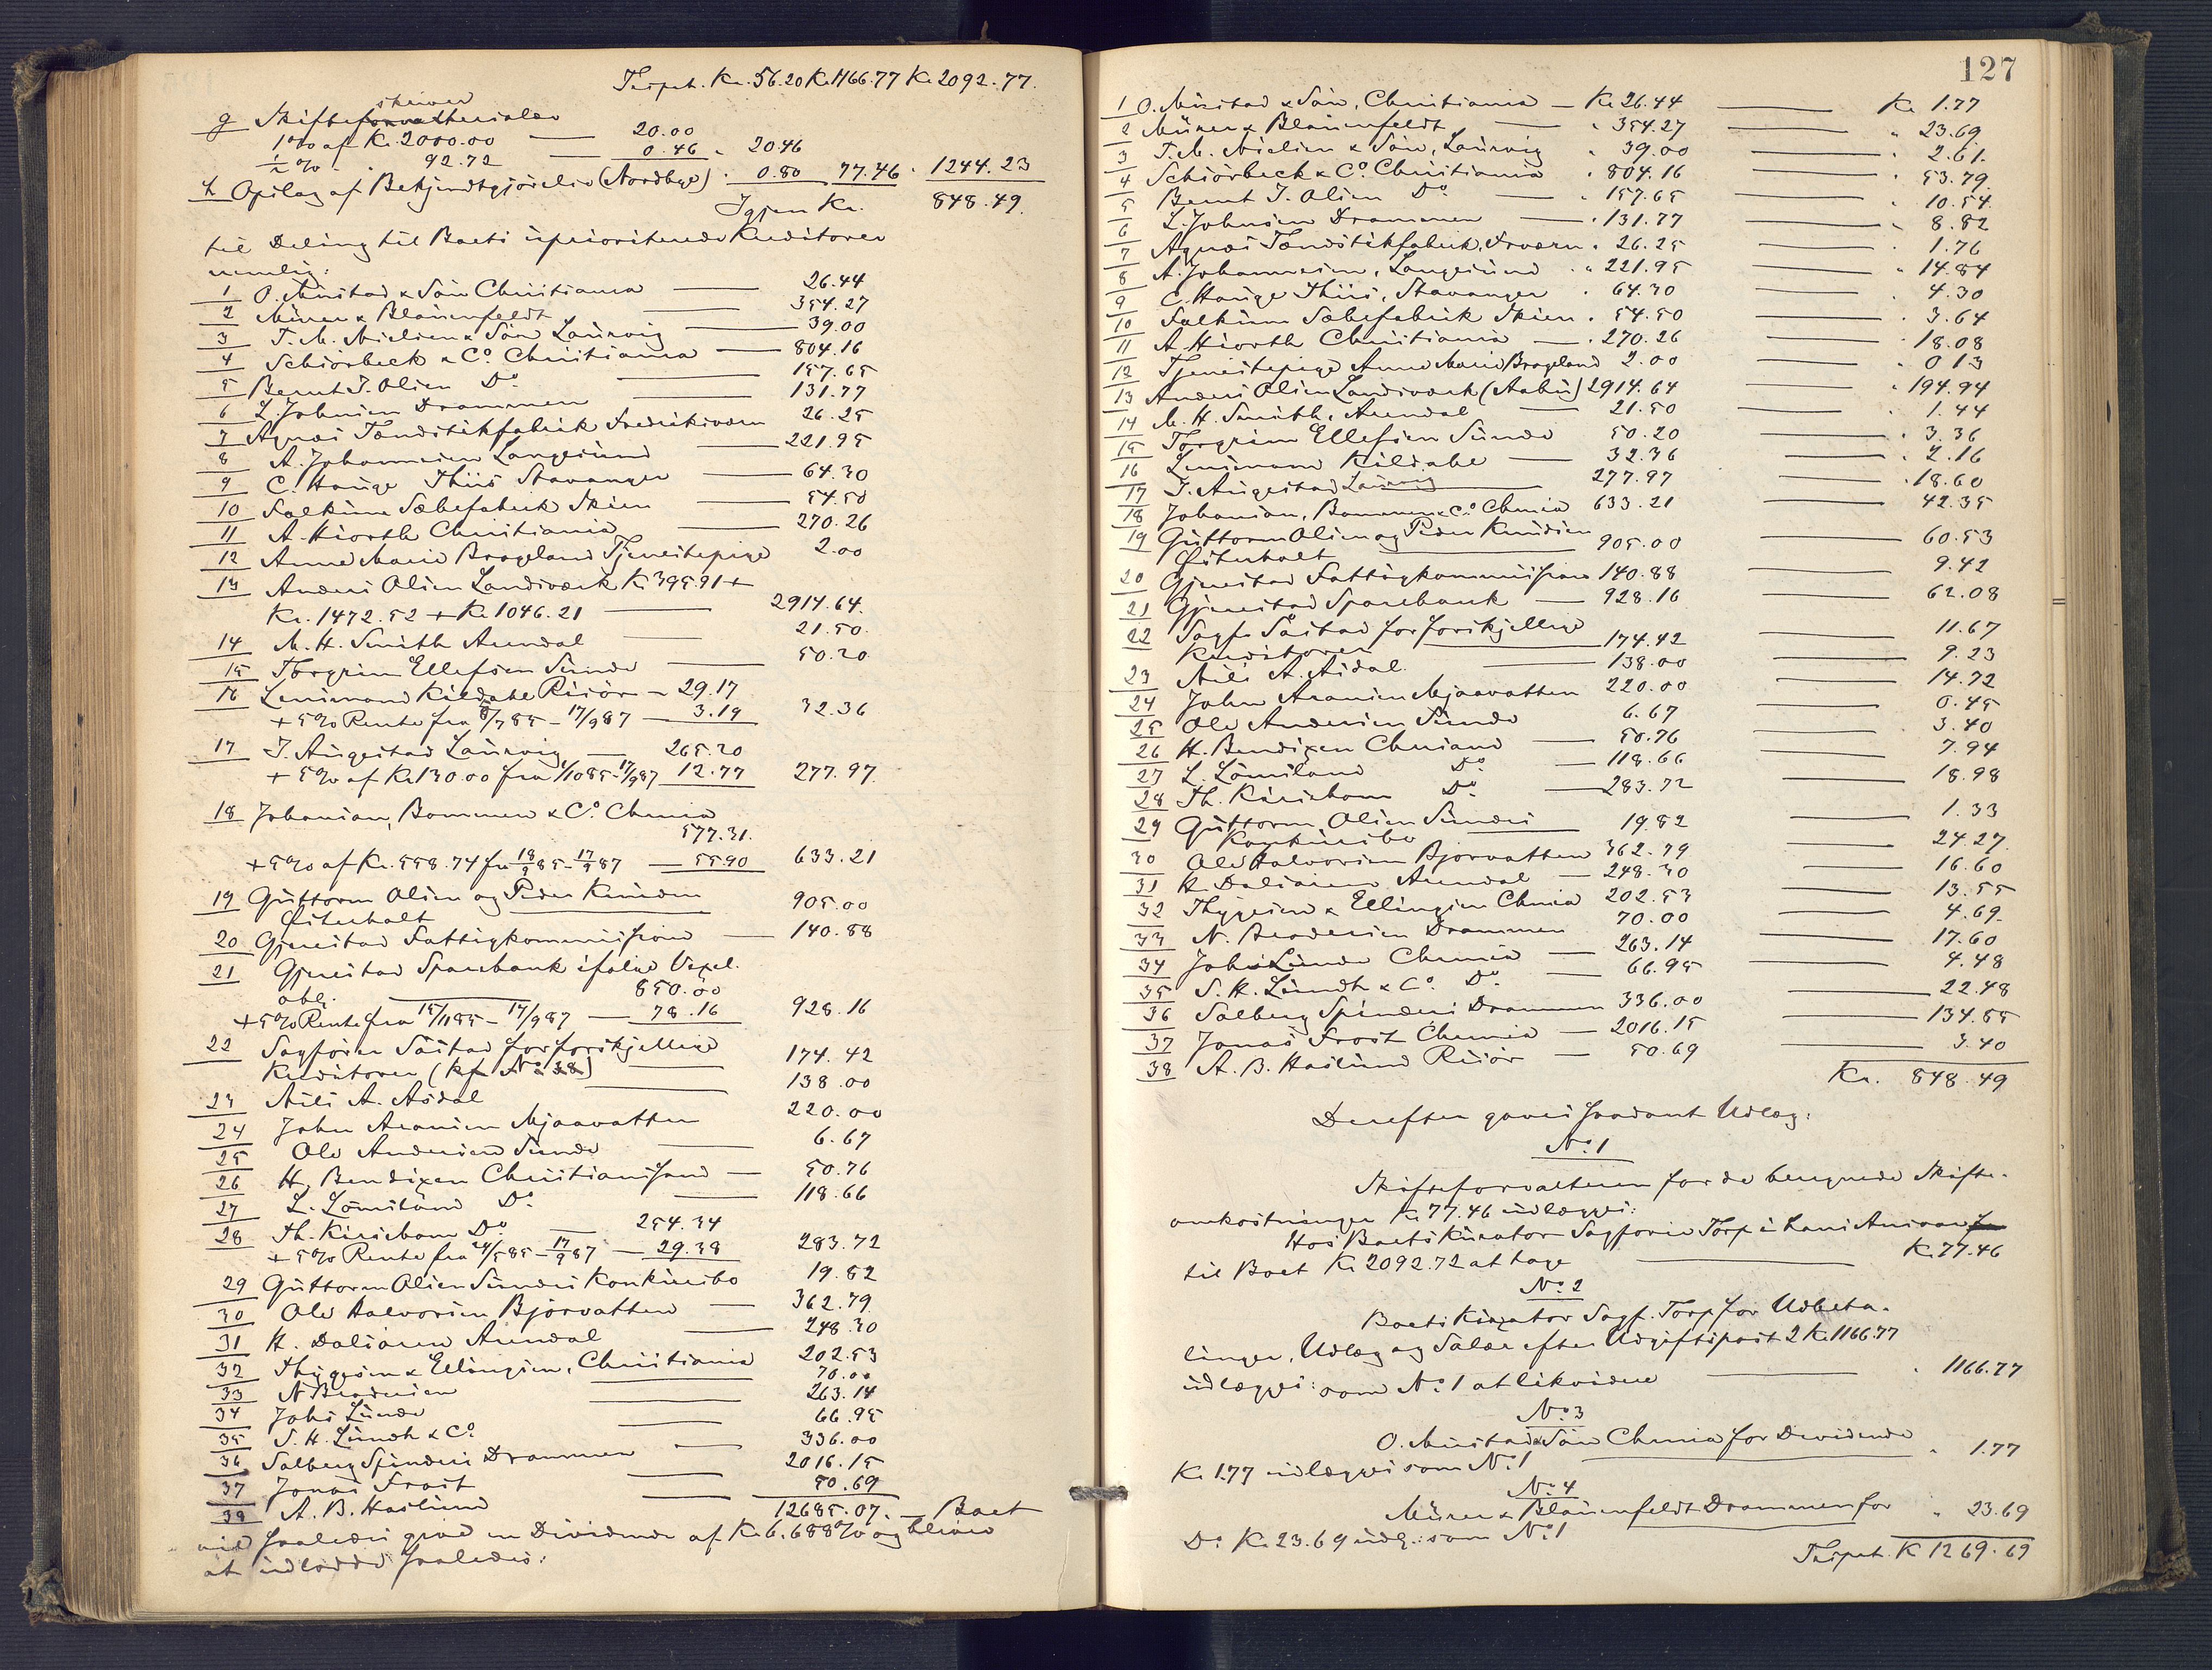 Trspt. Kr. 56.20 Kr 1166.77 Kr 2092.77.
g Skifte
1% af Kr. 2000.00 — 20.00
½ % „ 92.72 — 0.46 „ 20.46
h Opslag af Bekjendtgjørelse (Nordbye) „ 0.80 77.46 „ 1244.23
Igjen Kr. 848.49.
til Deling til Boets uprioriterede Kreditorer
nemlig:
1 O. Mustad & Søn Christiania — 26.44
2 Mürer & Blauenfeldt — 354.27
3 T. M. Nielsen & Søn Laurvig — 39.00
4 Schiörbeck & Co. Christiania — 804.16
5 Bernt J. Olsen Do. — 157.65
6 L. Johnsen Drammen — 131.77
7 Agnæs Tændstikfabrik Fredriksværn 26.25
8 A. Johannesen Langesund — 221.95
9 C. Hauge Thiis Stavanger — 64.30
10 Falkum Sæbefabrik Skien — 54.50
11 A. Hiorth Christiania — 270.26
12 Anne Marie Brogeland Tjenestepige 2.00
13 Anders Olsen Landsværk Kr 395.91 +
Kr. 1472.52 + Kr 1046.21 — 2914.64.
14 M. H. Smith Arendal — 21.50.
15 Torgrim Ellefsen Sunde — 50.20
16 Lensmand Kildahl Risør — 29.17
+ 5% Rente fra 8/7 85 - 17/9 87 — 3.19 32.36
17 J. Augestad Laurvig — 265.20
+ 5% af Kr 130.00 fra 1/10 85 - 17/9 87 12.77 277.97.
18 Johansen, Bommen & Co. Chrnia
577.31.
+ 5% af Kr. 558.74 fra 18/9 85 - 17/9 87 — 55.90 633.21
19 Guttorm Olsen og Peder Knudsen
Østerholt 905.00
20 Gjerestad Fattigkommission — 140.88
21 Gjerestad Sparebank ifølge Vexel.
obl. — 850.00
+ 5% Rente fra 15/11 85 - 17/9 87 — 78.16 928.16
22 Sagfører Sästad for forskjellige
Kreditorer (kfr No. 38) — 174.42
23 Nils A. Aasdal — 138.00
24 John Aransen Mjaavatten 220.00
25 Ole Andersen Sunde — 6.67
26 H. Bendixen Christianssand — 50.76
27 L. Lömsland Do. — 118.66
28 Th. Kirsebom Do. — 254.34
+ 5% Rente fra 24/5 85 - 17/9 87 — 29.38 283.72
29 Guttorm Olsen Sundes Konkursbo 19.82
30 Ole Halvorsen Bjorvatten — 362.79.
31 H. Dalsaren Arendal — 248.30
32 Thygesen & Ellingsen, Christiania 202.53
33 N Brodersen — 70.00
34 Johs Lunde — 263.14
35 S. H. Lundh & Co. — 66.95
36 Solberg Spinderi Drammen — 336.00
37 Jonas Frost — 2016.15
38 A. B. Haslund — 50.69
12685.07. — Boet
vil saaledes give en Dividende af Kr 6.688% og bliver
at udlodde saaledes:
127
1 O. Mustad & Søn, Christiania — Kr 26.44 — Kr 1.77
2 Mürer & Blauenfeldt — „ 354.27 — „ 23.69
3 T. M. Nielsen & Søn, Laurvig „ 39.00 — „ 2.61.
4 Schiörbeck & Co. Christiania „ 804.16 — „ 53.79
5 Bernt J. Olsen Do. — „ 157.65 — „ 10.54
6 L. Johnsen Drammen — „ 131.77 — „ 8.82
7 Agnæs Tændstikfabrik, Frværn „ 26.25 — „ 1.76
8 A. Johannesen, Langesund „ 221.95 — „ 14.84
9 C. Hauge Thiis, Stavanger „ 64.30 — „ 4.30
10 Falkum Sæbefabrik Skien „ 54.50 — „ 3.64
11 A Hiorth Christiania — „ 270.26 — „ 18.08
12 Tjenestepige Anne Marie Brogeland 2.00 — „ 0 13
13 Anders Olsen Landsværk (Aabu) 2914.64 — „ 194.94
14 M. H. Smith, Arendal — 21.50 — „ 1.44
15 Torgrim Ellefsen Sunde 50.20 — „ 3.36
16 Lensmand Kildahl — 32.36 — „ 2.16
17 J. Augestad Laurvig — 277.97 — „ 18.60
18 Johansen, Bommen & Co. Chrnia 633.21 — 42.35
19 Guttorm Olsen og Peder Knudsen
Østerholt — 905.00 — 60.53
20 Gjerestad Fattigkommission 140.88 — 9.42
21 Gjerestad Sparebank — 928.16 — 62.08
22 Sagf. Sästad for forskjellige
Kreditorer — 174.42 — 11.67
23 Nils A. Aasdal — 138.00 — 9.23
24 John Aransen Mjaavatten 220.00 — 14.72
25 Ole Andersen Sunde 6.67 — 0.45
26 H. Bendixen Chrsand — 50.76 — 3.40
27 L. Lömsland Do. — 118.66 — 7.94
28 Th. Kirsebom Do. — 283.72 — 18.98
29 Guttorm Olsen Sundes
Konkursbo — 19.82 — 1.33
30 Ole Halvorsen Bjorvatten 362.79 — 24.27.
31 H. Dalsaren Arendal — 248.30 — 16.60
32 Thygesen & Ellingsen Chrnia 202.53 — 13.55
33 N. Brodersen Drammen 70.00 — 4.69.
34 Johs Lunde Chrnia — 263.14 — 17.60
35 S. H. Lundh & Co. Do. — 66.95 — 4.48
36 Solberg Spinderi Drammen 336.00 — 22.48
37 Jonas Frost Chrnia — 2016.15 — 134.85
38 A. B. Haslund Risør — 50.69 — 3.40
Kr. 848.49
Derefter gaves saadant Udlæg:
No. 1
Skifteforvalteren for de beregnede Skifte-
omkostninger Kr 77.46 udlægges:
Hos Boets Kurator Sagfører Torp i hans Ansvar
til Boet Kr 2092.72 at tage — Kr. 77.46
No. 2
Boets Kurator Sagf. Torp for Udbeta-
linger, Udlæg og Salær efter Udgiftspost 2 Kr. 1166.77
udlægges: som No. 1 at likvidere — „ 1166.77
No. 3
O. Mustad & Søn Chrnia for Dividende
Kr 1.77 udlægges som No. 1 — „ 1.77
No. 4
Mürer & Blauenfeldt Drammen for
Do. Kr. 23.69 udlg.: som No. 1 „ 23.69
Trspt. K 1269.69